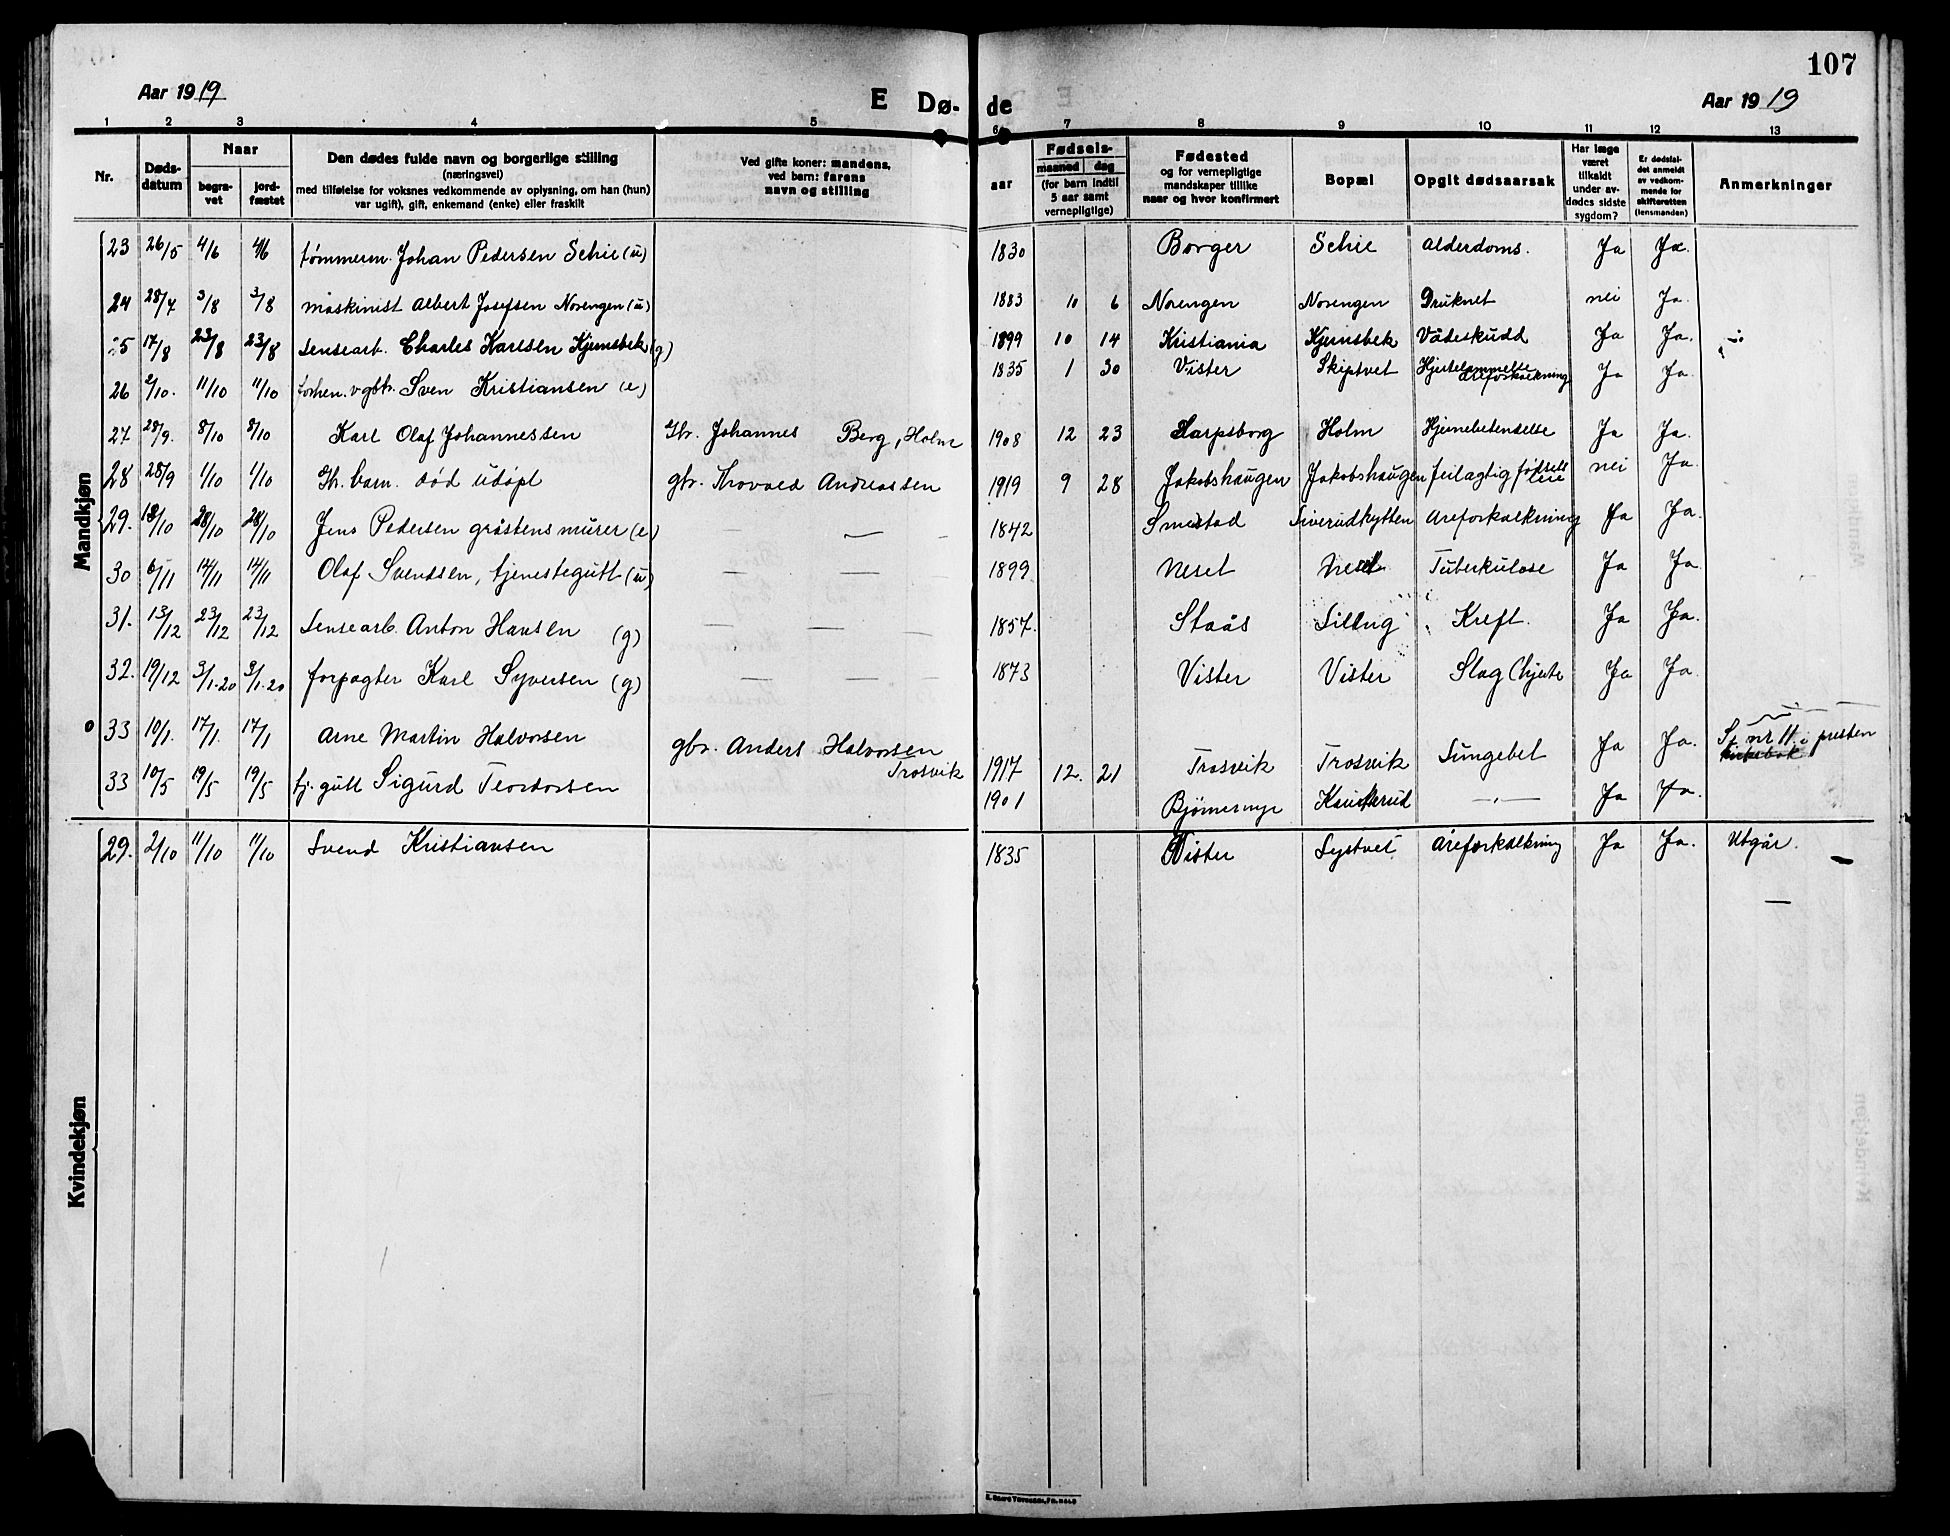 107
Aar 1919
E Dø- de
Aar 1919
1 2 3 4 5 6 7 8 9 10 11 12 13
Nr.
Døds-
datum
Naar
begra-
vet
jord-
fæstet
Den dødes fulde navn og borgerlige stilling
(næringsvei)
med tilføielse for voksnes vedkommende av oplysning, om han (hun)
var ugift), gift, enkemand (enke) eller fraskilt
Ved gifte koner: mandens,
ved barn: farens
navn og stilling
Fødsels-
aar
maaned dag
(for barn indtil
5 aar samt
vernepligtige)
Fødested
og for vernepligtige
mandskaper tillike
naar og hvor konfirmert
Bopæl
Opgit dødsaarsak
Har læge
været
tilkaldt
under av-
dødes sidste
sygdom?
Er dødsfal-
det anmeldt
av vedkom-
mende for
skifteretten
(lensmanden)
Anmerkninger
Mandkjøn
23 26/5 4/6 4/6 tømmerm. Johan Pedersen Schie (u) 1830 Borger Schie Alderdoms. Ja Ja.
24 28/7 3/8 3/8 maskinist Albert Josefsen Norengen (u) 1883 10 6 Norengen Norengen Druknet nei Ja.
25 17/8 23/8 23/8 Lensearb. Charles Karlsen Kjernsbek (g) 1899 10 14 Kristiania Kjernsbek Vådeskudd Ja Ja.
26 2/10. 11/10 11/10 forhen. v. gbr. Sven Kristiansen (e) 1835 1 30 Vister Skiptvet Hjertelammelse Åreforkalkning Ja Ja.
27 28/9. 8/10 8/10 Karl Olaf Johannessen Gbr. Johannes Berg, Holm 1908 12 23 Sarpsborg Holm Hjernebetendelse Ja Ja.
28 28/9 1/10 1/10 Gt. barn. død udøpt gbr. Thorvald Andreassen 1919 9 28 Jakobshaugen Jakobshaugen feilagtig fødsels leie nei Ja.
29. 18/10 28/10 28/10 Jens Pedersen gråstensmurer (e) — — - 1842 Smestad Siverudhytten Areforkalkning Ja Ja.
30 6/11 14/11 14/11 Olaf Svendsen, tjenestegutt (u) — — — 1899 Neset Neset Tuberkulose Ja Ja
31. 13/12 23/12 23/12 Lensearb. Anton Hansen (g) — — — 1857. Staås Lilleng Kreft. Ja Ja.
32. 19/12 3/1.20 3/1.20 forpagter Karl Syversen (g) — — — 1873 Vister Vister Slag (hjerte Ja Ja.
33 10/1. 17/1. 17/1 Arne Martin Halvorsen gbr. Anders Halvorsen Trosvik 1917 12. 21 Trosvik Trosvik Lungebet Ja Ja. S. nr 11 i presten kirkebok
33 10/5 19/5 19/5 tj. gutt Sigurd Teodorsen 1901 Bjørnermyr —„— Ja Ja.
Kvindekjøn
29. 2/10 11/10 11/10 Svend Kristiansen 1835 Vister Åreforkalkning Ja Ja. Utgår.